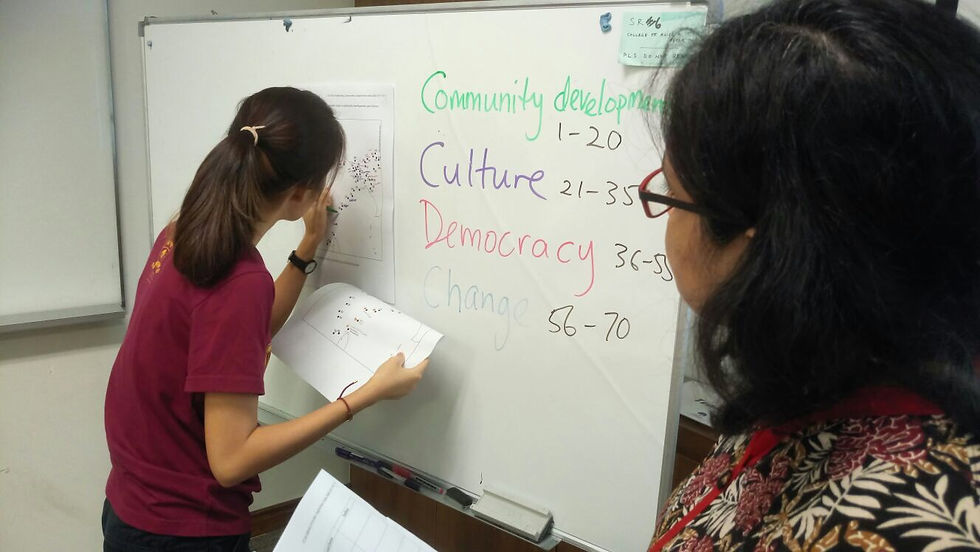 SR
COLLEGE OF ALICE
PLS DO NOT
Community developmen
1-20
Culture 21-35
Democracy 36-55
Change 56-70